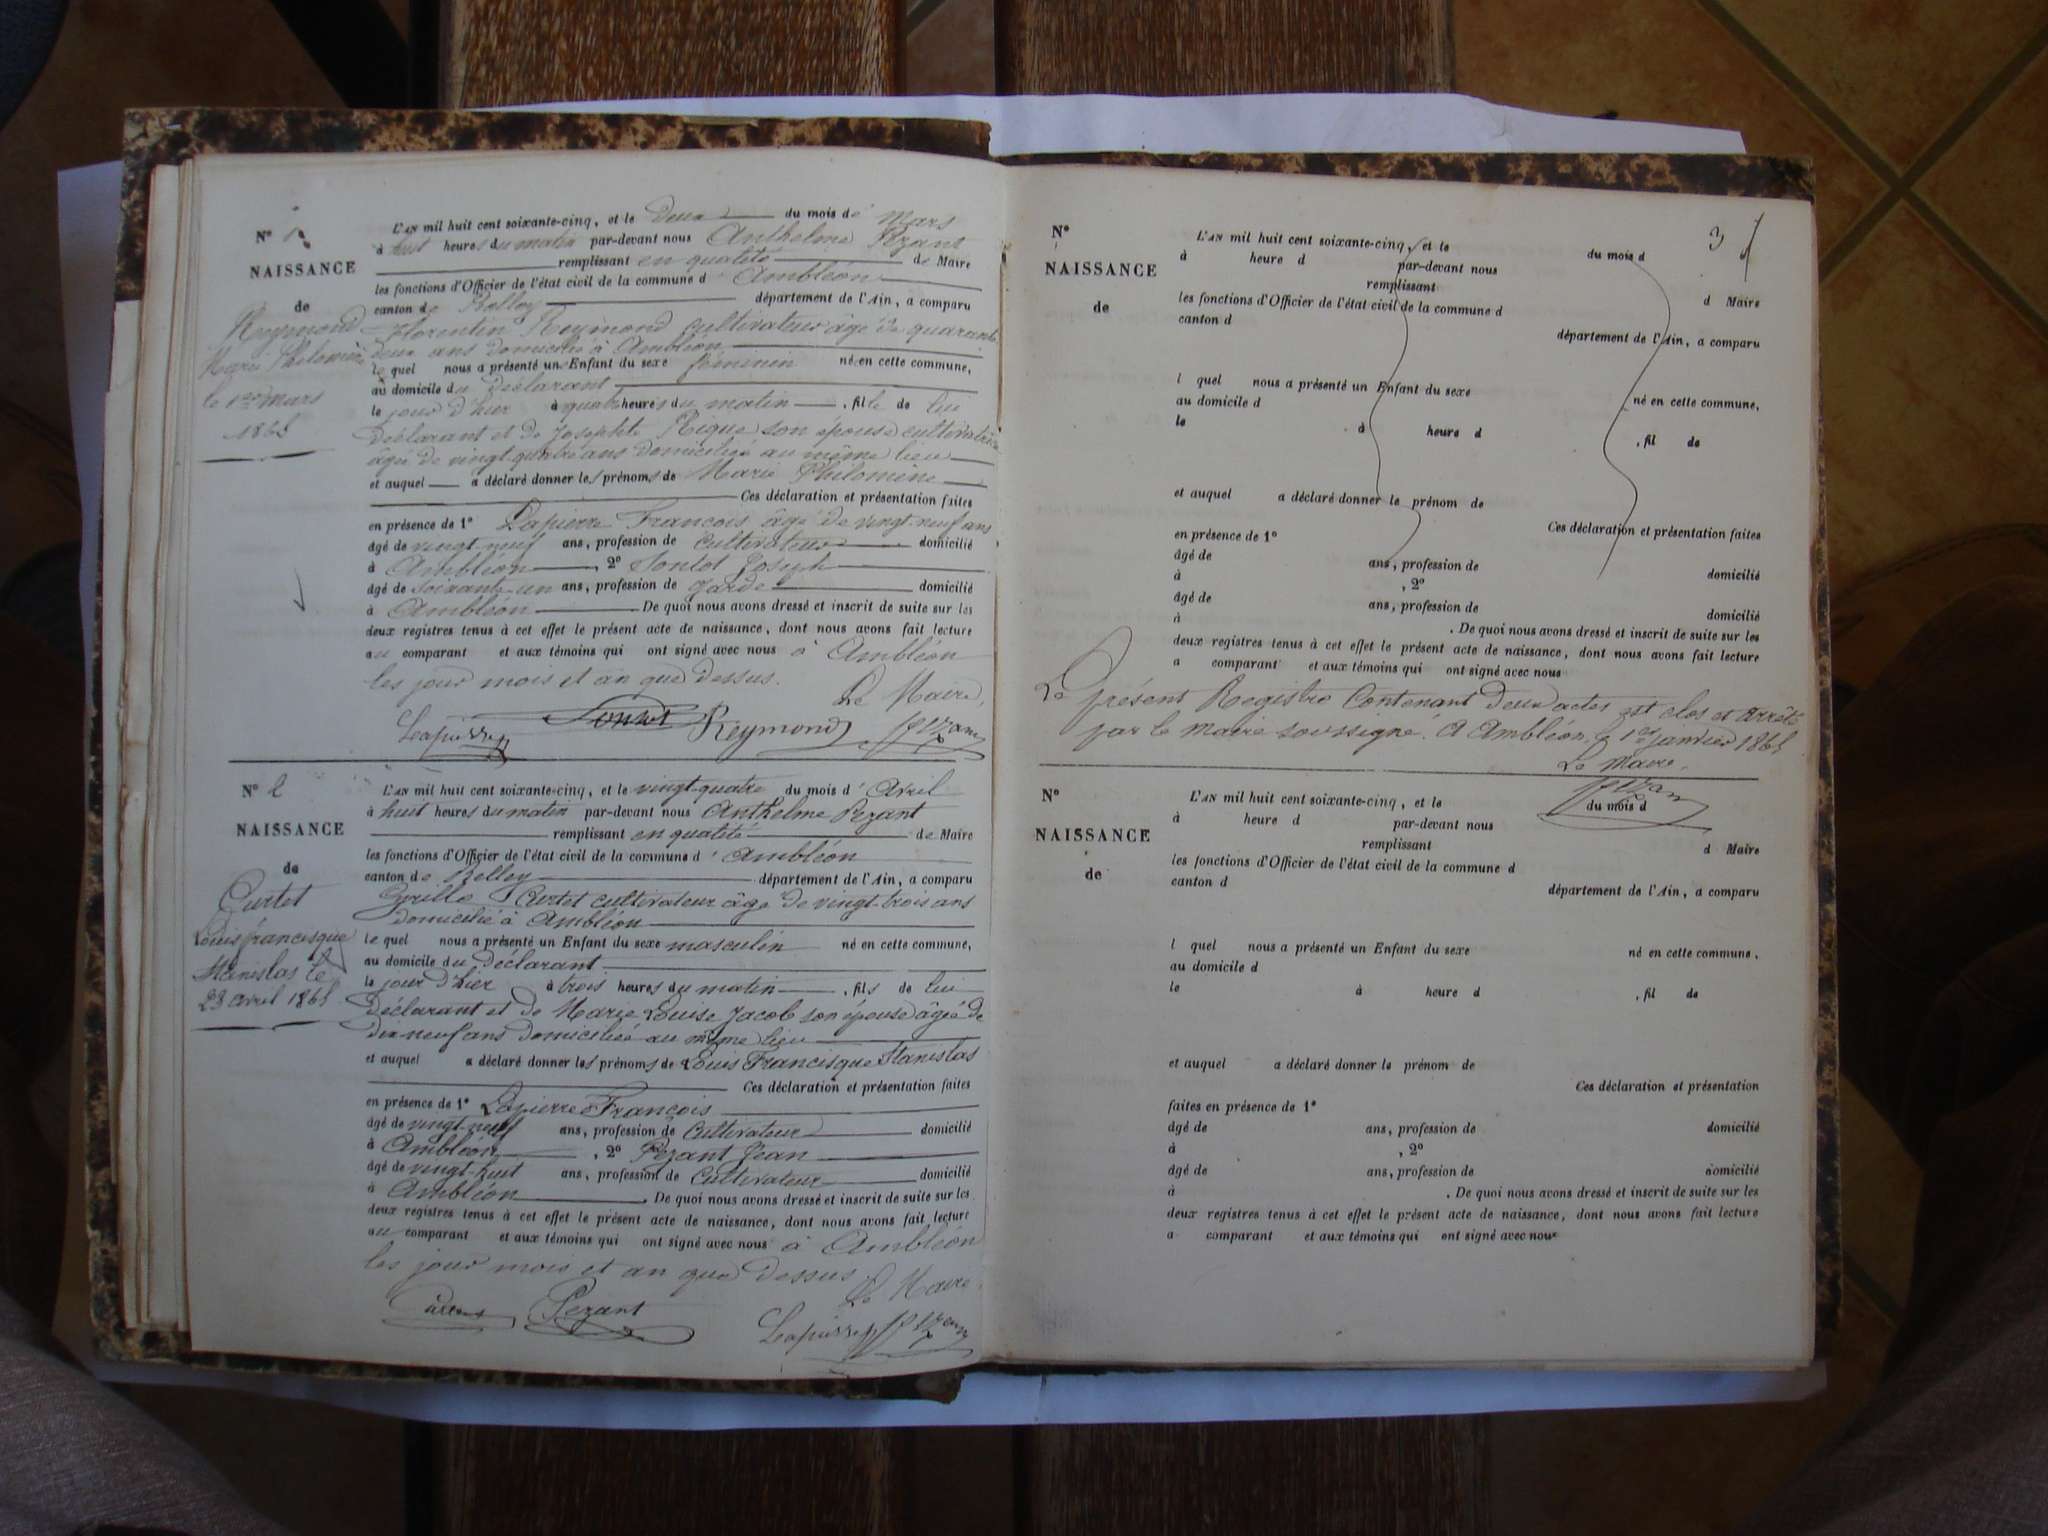 N° 1
NAISSANCE
de
Reymond
Marie Philomène
le 1er mars
1865
L'AN mil huit cent soixante-cinq, et le Deux du mois de Mars
à huit heures du matin par-devant nous Anthelme Pezant
remplissant en qualité de Maire
les fonctions d'Officier de l'état civil de la commune d'Ambléon
canton de Belley département de l'Ain, a comparu
Florentin Reymond cultivateur âgé de quarante
deux ans domicilié à Ambléon
le quel nous a présenté un Enfant du sexe féminin né en cette commune,
au domicile du déclarant
le jour d'hier à quatre heures du matin, fille de lui
Déclarant et de Josephte Rigue son épouse cultivatrice
âgée de vingt quatre ans domiciliée au même lieu
et auquel a déclaré donner les prénoms de Marie Philomène
Ces déclaration et présentation faites
en présence de 1° Lapierre François âgé de vingt-neuf ans
âgé de vingt-neuf ans, profession de cultivateur domicilié
à Ambléon, 2° Joseph
âgé de soixante-un ans, profession de garde domicilié
à Ambléon. De quoi nous avons dressé et inscrit de suite sur les
deux registres tenus à cet effet le présent acte de naissance, dont nous avons fait lecture
au comparant et aux témoins qui ont signé avec nous à Ambléon
les jour mois et an que dessus.
Le Maire,
Lapierre Reymond
N° 2
NAISSANCE
de
Curtet
Louis francisque
Stanislas le
23 avril 1865
L'AN mil huit cent soixante-cinq, et le vingt-quatre du mois d'Avril
à huit heures du matin par-devant nous Anthelme Pezant
remplissant en qualité de Maire
les fonctions d'Officier de l'état civil de la commune d'Ambléon
canton de Belley département de l'Ain, a comparu
Curtet cultivateur âgé de vingt-trois ans
domicilié à Ambléon
le quel nous a présenté un Enfant du sexe masculin né en cette commune,
au domicile du Déclarant
le jour d'hier à trois heures du matin, fils de lui
Déclarant et de Marie Louise Jacob son épouse âgée de
dix-neuf ans domiciliée au même lieu
et auquel a déclaré donner les prénoms de Louis Francisque Stanislas
Ces déclaration et présentation faites
en présence de 1° Lapierre François
âgé de vingt-neuf ans, profession de cultivateur domicilié
à Ambléon, 2° Pezant Jean
âgé de vingt-huit ans, profession de cultivateur domicilié
à Ambléon. De quoi nous avons dressé et inscrit de suite sur les
deux registres tenus à cet effet le présent acte de naissance, dont nous avons fait lecture
au comparant et aux témoins qui ont signé avec nous à Ambléon
les jour mois et an que dessus
Le Maire,
Pezant Lapierre
3
N°
NAISSANCE
de
L'AN mil huit cent soixante-cinq, et le du mois d
à heure d par-devant nous
remplissant d Maire
les fonctions d'Officier de l'état civil de la commune d
canton d département de l'Ain, a comparu
l quel nous a présenté un Enfant du sexe né en cette commune,
au domicile d
le à heure d , fil de
et auquel a déclaré donner le prénom de
Ces déclaration et présentation faites
en présence de 1°
âgé de ans, profession de domicilié
à , 2°
âgé de ans, profession de domicilié
à . De quoi nous avons dressé et inscrit de suite sur les
deux registres tenus à cet effet le présent acte de naissance, dont nous avons fait lecture
a comparant et aux témoins qui ont signé avec nous
Le présent Registre Contenant Deux actes est clos et arrêté
par le maire soussigné. A Ambléon, le 1er janvier 1865
Le Maire.
N°
NAISSANCE
de
L'AN mil huit cent soixante-cinq, et le du mois d
à heure d par-devant nous
remplissant d Maire
les fonctions d'Officier de l'état civil de la commune d
canton d département de l'Ain, a comparu
l quel nous a présenté un Enfant du sexe né en cette commune,
au domicile d
le à heure d , fil de
et auquel a déclaré donner le prénom de
Ces déclaration et présentation
faites en présence de 1°
âgé de ans, profession de domicilié
à , 2°
âgé de ans, profession de domicilié
à . De quoi nous avons dressé et inscrit de suite sur les
deux registres tenus à cet effet le présent acte de naissance, dont nous avons fait lecture
a comparant et aux témoins qui ont signé avec nous